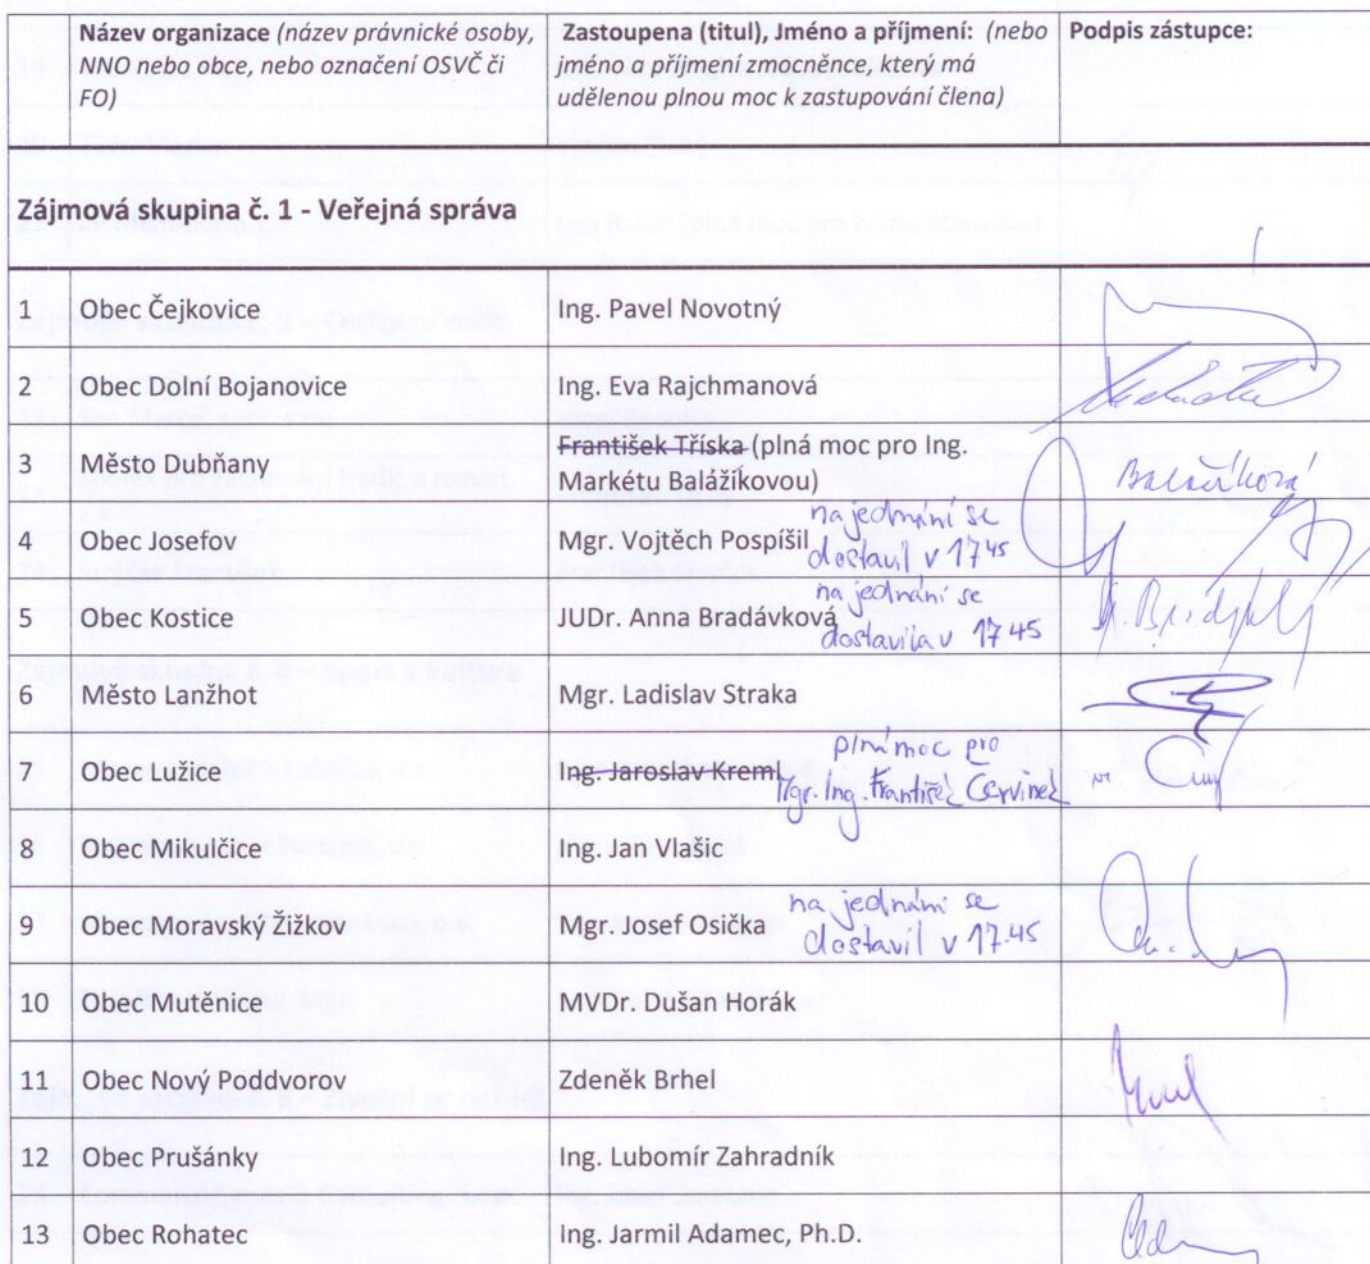 Název organizace (název právnické osoby,
NNO nebo obce, nebo označení OSVČ či
FO)
Zastoupena (titul), Jméno a příjmení: (nebo
jméno a příjmení zmocněnce, který má
udělenou plnou moc k zastupování člena)
Podpis zástupce:
Zájmová skupina č. 1 - Veřejná správa
1 Obec Čejkovice Ing. Pavel Novotný
2 Obec Dolní Bojanovice Ing. Eva Rajchmanová
3 Město Dubňany František Tříska (plná moc pro Ing.
Markétu Balážíkovou) Balážíková
4 Obec Josefov Mgr. Vojtěch Pospíšil
na jednání se
dostavil v 17 45
5 Obec Kostice JUDr. Anna Bradávková
na jednání se
dostavila v 17 45
6 Město Lanžhot Mgr. Ladislav Straka
7 Obec Lužice Ing. Jaroslav Kreml
plná moc pro
Mgr. Ing. František Červinek
8 Obec Mikulčice Ing. Jan Vlašic
9 Obec Moravský Žižkov Mgr. Josef Osička
na jednání se
dostavil v 17.45
10 Obec Mutěnice MVDr. Dušan Horák
11 Obec Nový Poddvorov Zdeněk Brhel
12 Obec Prušánky Ing. Lubomír Zahradník
13 Obec Rohatec Ing. Jarmil Adamec, Ph.D.